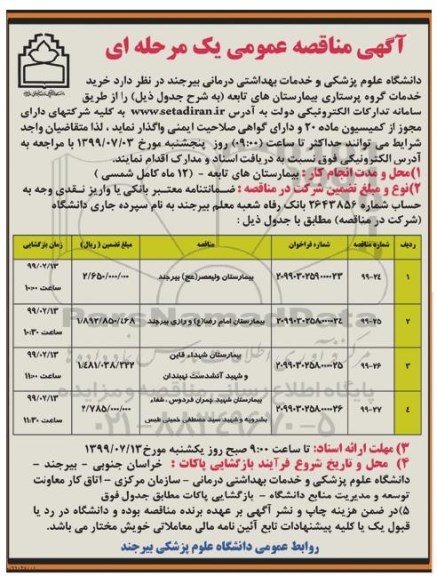 آگهی مناقصه عمومی یک مرحله ای
دانشگاه علوم پزشکی و خدمات بهداشتی درمانی بیرجند در نظر دارد خرید
خدمات گروه پرستاری بیمارستان های تابعه (به شرح جدول ذیل) را از طریق
سامانه تدارکات الکترونیکی دولت به آدرس www.setadiran.ir به کلیه شرکتهای دارای
مجوز از کمیسیون ماده ۲۰ و دارای گواهی صلاحیت ایمنی واگذار نماید ، لذا متقاضیان واجد
شرایط می توانند حداکثر تا ساعت (۰۹:۰۰) روز پنجشنبه مورخ ۱۳۹۹/۰۷/۰۳ با مراجعه به
آدرس الکترونیکی فوق نسبت به دریافت اسناد و مدارک اقدام نمایند.
۱)محل و مدت انجام کار : بیمارستان های تابعه - (۱۲ ماه کامل شمسی )
۲)نوع و مبلغ تضمین شرکت در مناقصه : ضمانتنامه معتبر بانکی یا واریز نقدی وجه به
حساب شماره ۲۶۴۳۸۵۶ بانک رفاه شعبه معلم بیرجند به نام سپرده جاری دانشگاه
(شرکت در مناقصه) مطابق با جدول ذیل :
ردیف شماره مناقصه شماره فراخوان مناقصه مبلغ تضمین ( ریال) زمان بازگشایی
۱ ۹۹-۲٤ ۲۰۹۹۰۳۰۲۵۹۰۰۰۰۲۳ بیمارستان ولیعصر(عج) بیرجند ۲/۶۵۰/۰۰۰/۰۰۰ ۹۹/۰۷/۱۳ ساعت ۱۰:۰۰
۲ ۹۹-۲۵ ۲۰۹۹۰۳۰۲۵۸۰۰۰۰۲٤ بیمارستان امام رضا(ع) و رازی بیرجند ۱/۸۹۲/۸۵۰/٤۶۸ ۹۹/۰۷/۱۳ ساعت ۱۰:۳۰
۳ ۹۹-۲۶ ۲۰۹۹۰۳۰۲۵۸۰۰۰۰۲۵ بیمارستان شهداء قاین و شهید آتشدست نهبندان ۱/٤۸۱/۰۳۸/۲۲۲ ۹۹/۰۷/۱۳ ساعت ۱۱:۰۰
٤ ۹۹-۲۷ ۲۰۹۹۰۳۰۲۵۸۰۰۰۰۲۶ بیمارستان شهید چمران فردوس ، شفاء بشرویه و شهید سید مصطفی خمینی طبس ۲/۷۸۵/۰۰۰/۰۰۰ ۹۹/۰۷/۱۳ ساعت ۱۱:۳۰
۳) مهلت ارائه اسناد: تا ساعت ۹:۰۰ صبح روز یکشنبه مورخ ۱۳۹۹/۰۷/۱۳
۴) محل و تاریخ شروع فرآیند بازگشایی پاکات : خراسان جنوبی - بیرجند -
دانشگاه علوم پزشکی و خدمات بهداشتی درمانی - سازمان مرکزی - اتاق کار معاونت
توسعه و مدیریت منابع دانشگاه - بازگشایی پاکات مطابق جدول فوق
۵)در ضمن هزینه چاپ و نشر آگهی بر عهده برنده مناقصه بوده و دانشگاه در رد یا
قبول یک یا کلیه پیشنهادات تابع آئین نامه مالی معاملاتی خویش مختار می باشد.
روابط عمومی دانشگاه علوم پزشکی بیرجند